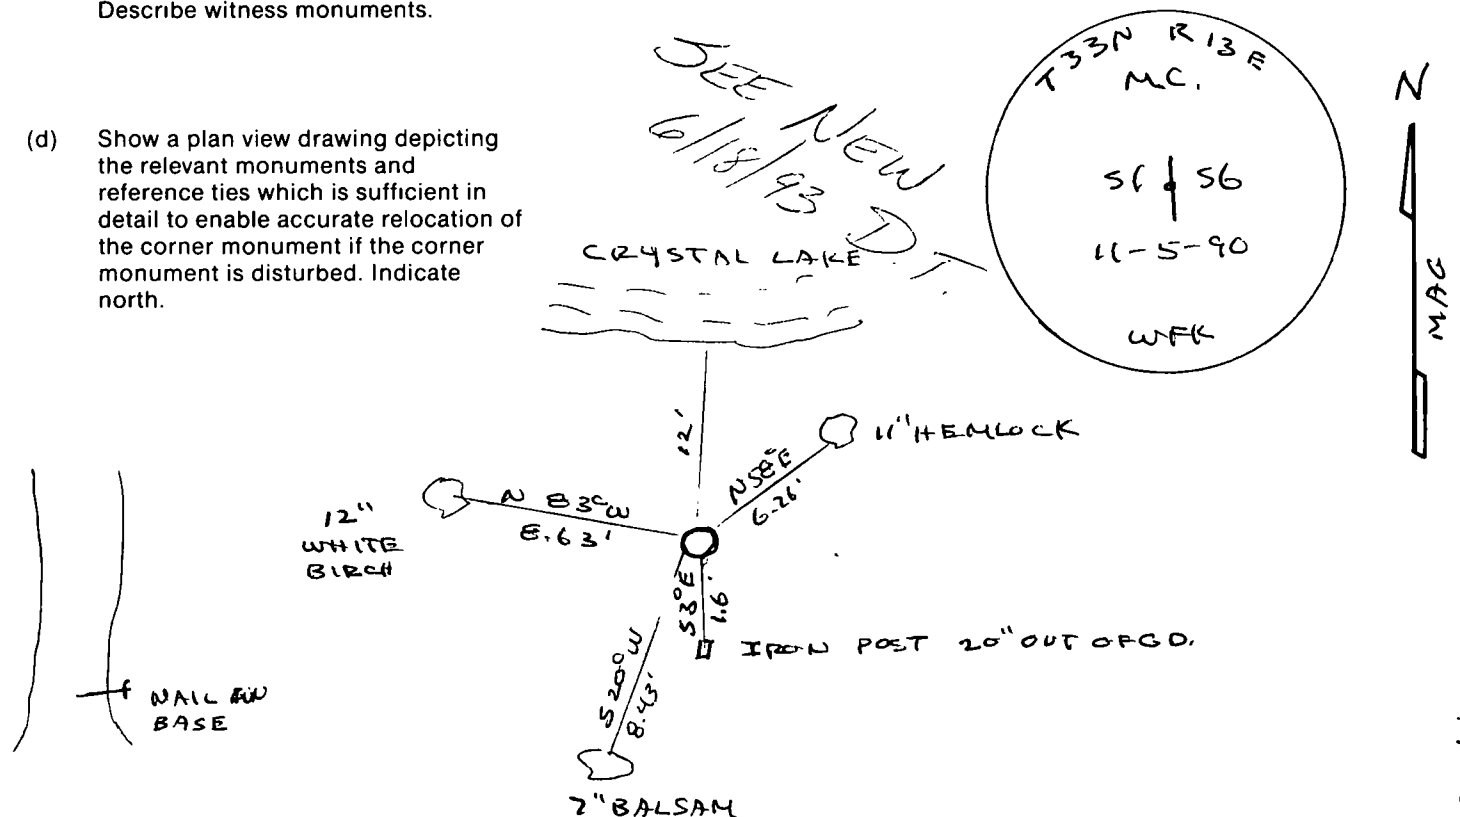 Describe witness monuments.
(d) Show a plan view drawing depicting
the relevant monuments and
reference ties which is sufficient in
detail to enable accurate relocation of
the corner monument if the corner
monument is disturbed. Indicate
north.
SEE NEW
6/18/93 D.T.
T33N R13E
M.C.
S1 S6
11-5-90
WFK
N
MAG
CRYSTAL LAKE
12'
11" HEMLOCK
N58°E
6.26'
N 83°W
8.63'
12"
WHITE
BIRCH
S3°E
1.6'
IRON POST 20" OUT OF GD.
S20°W
8.43'
7" BALSAM
NAIL IN
BASE